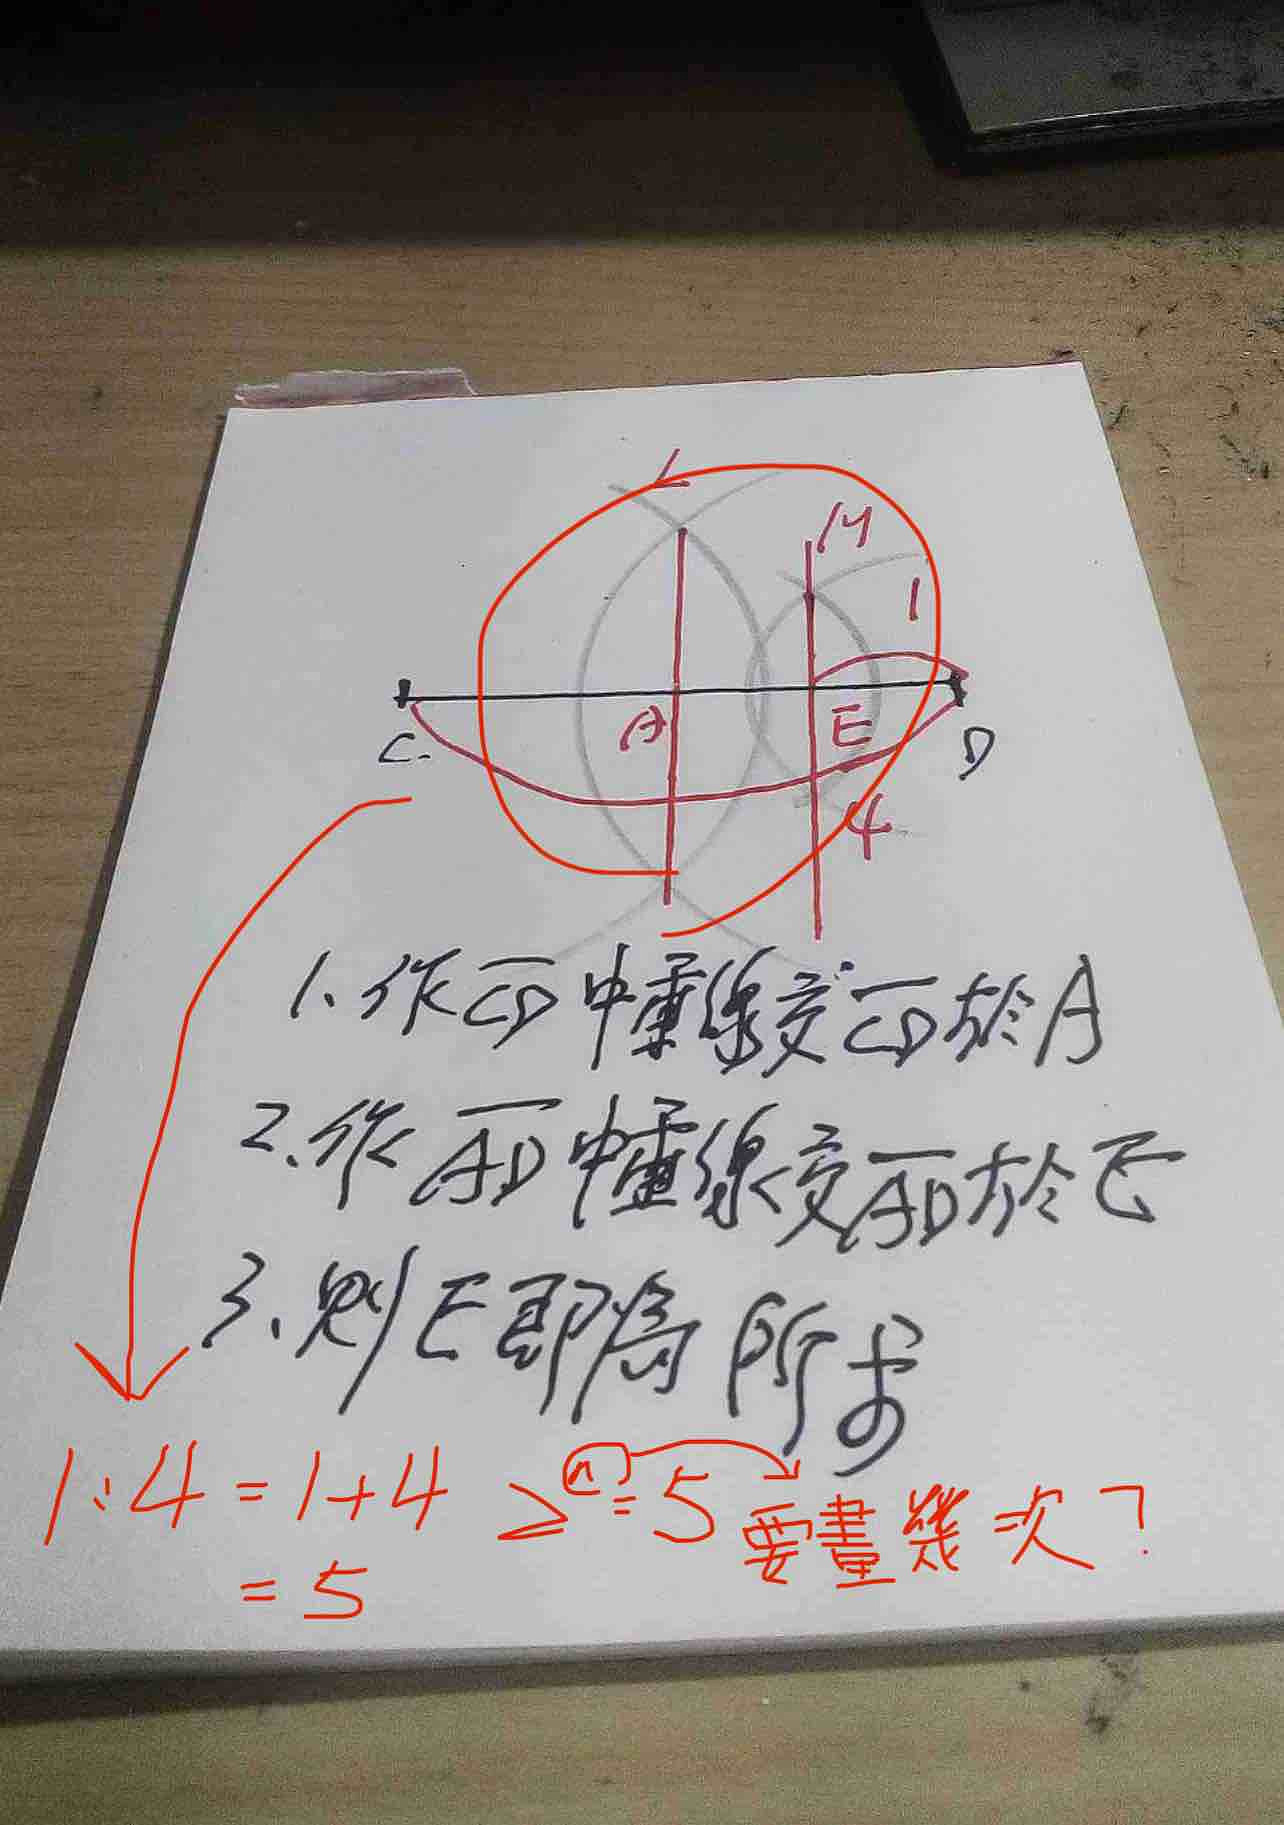 L
M
1
A
E
C.
D
4
1.作CD中垂線交CD於A
2.作AD中垂線交AD於E
3.則E即為所求
1:4=1+4
=5
2ⁿ=5要畫幾次?